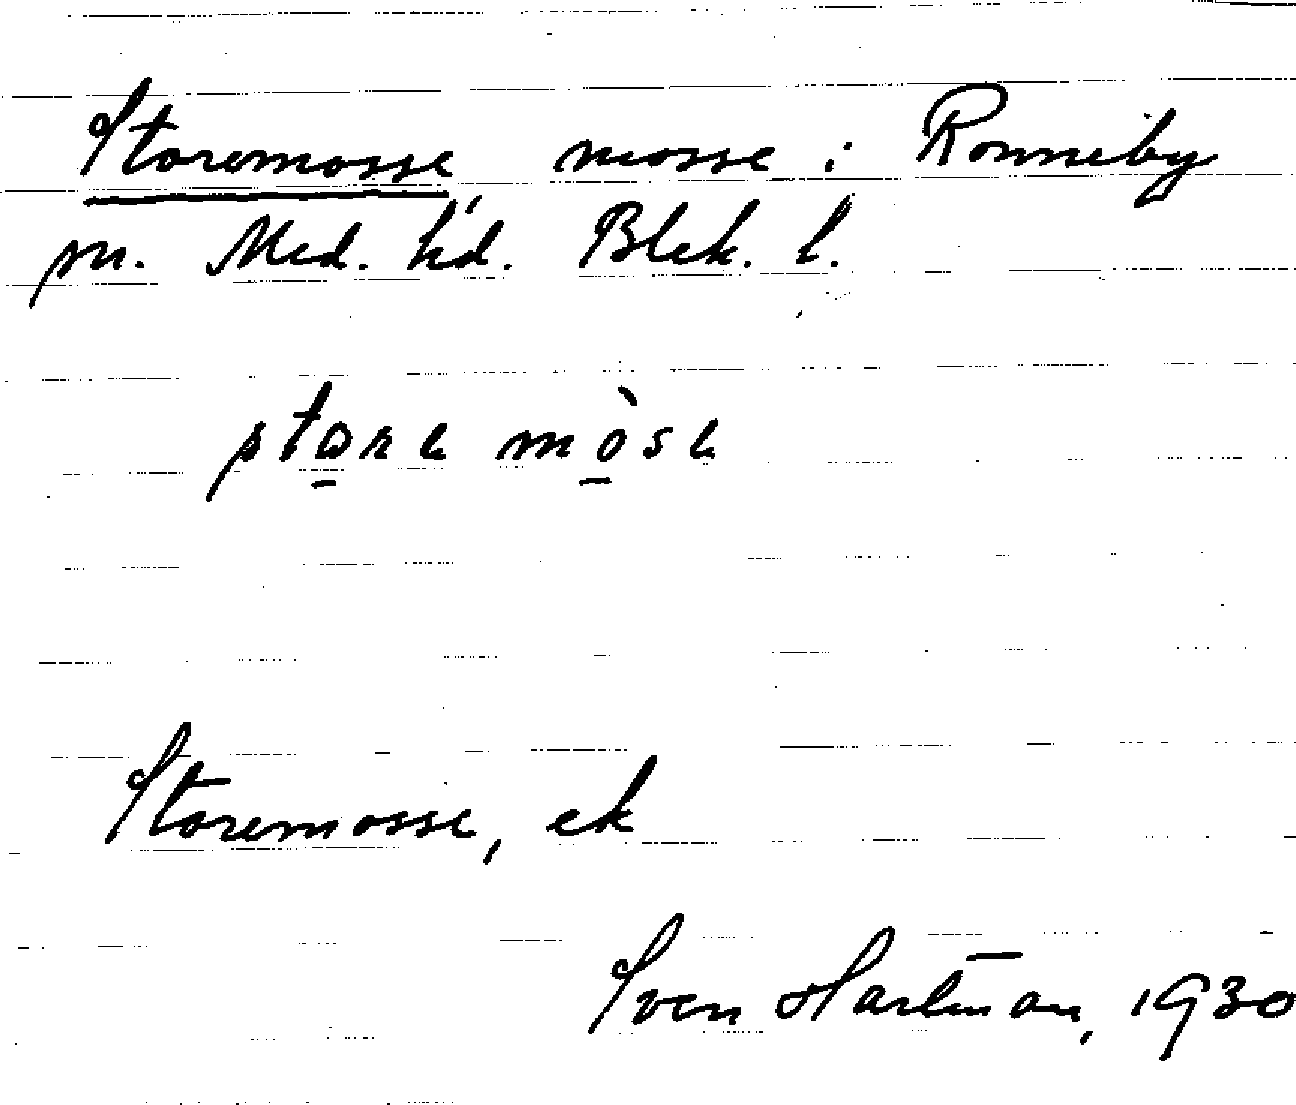 Storemosse, mosse i Ronneby
sn. Med. hd. Blek. l.
store mòse
Storemosse, ek
Sven Hartman, 1930